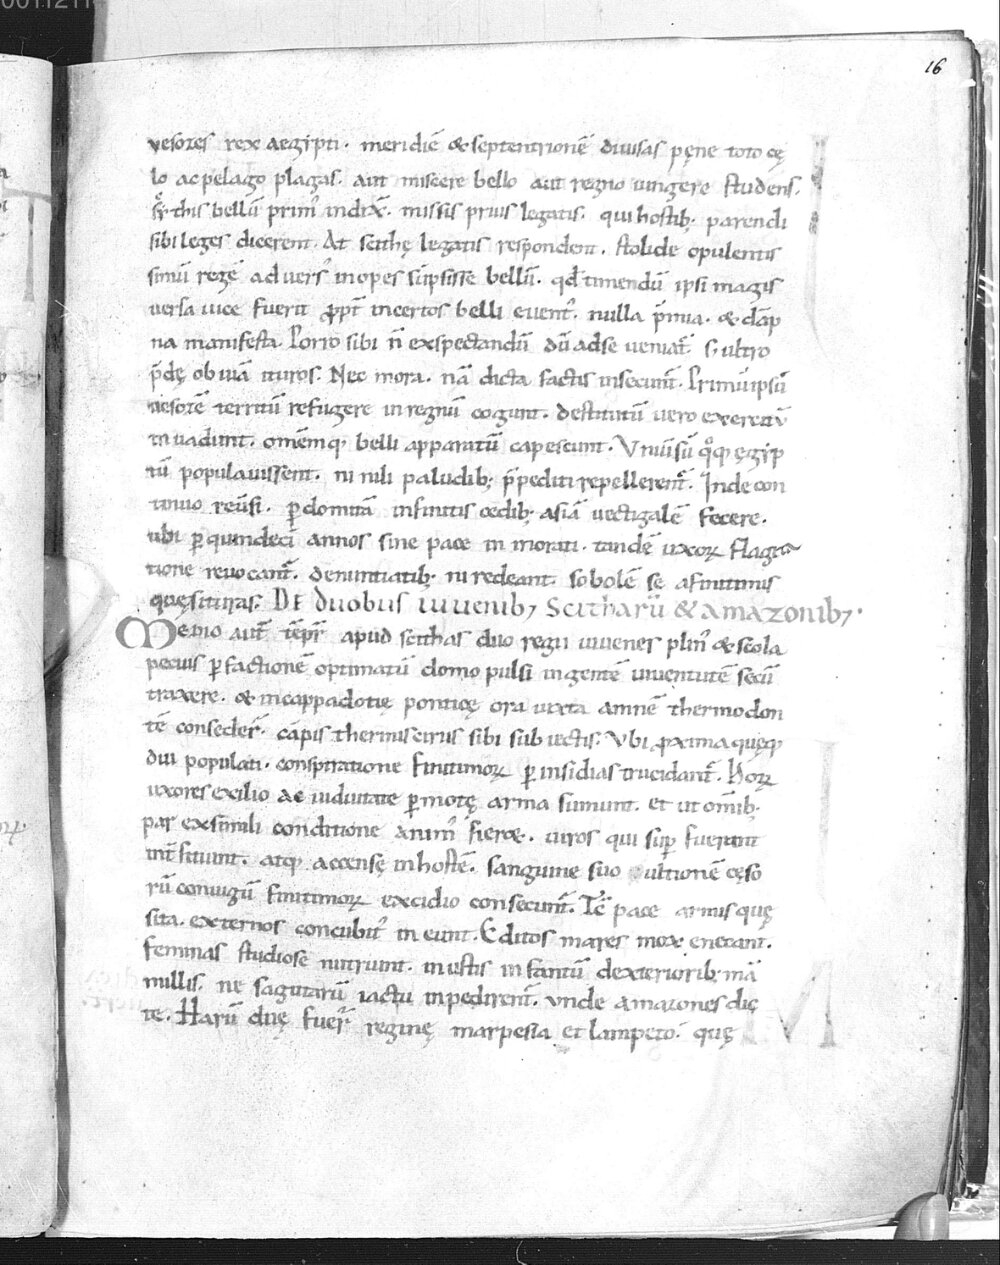 16
vesozes rex aegipti. meridiē & septentrionē diuisas pęne toto cę
lo ac pelago plagas. aut miscere bello aut regno iungere studens.
bellū prim' indix̄. missis prius legatis. qui hostib; parendi
sibi leges dicerent. At scithę legatis respondent. stolide opulentis
simū regē aduers' inopes sūpsisse bellū. qd̄ timendū ipsi magis
uersa uice fuerit ꝓpt̄ incertos belli euent'. nulla p̄mia. & dāp
na manifesta. Porro sibi n̄ exspectandū dū ad se ueniat᷒. s; ultro
p̄dę obuiā ituros. Nec mora. nā dicta factis insecunt᷒. Primū ipsū
uesozē territū refugere in regnū cogunt. destitutū uero exercitū
inuadunt. omēmq; belli apparatū capescunt. Vniuersū q°q; ęgip
tū populauissent. ni nili paludib; p̄pediti repellerent᷒. Inde con
tinuo reūsi. ꝑdomitā infinitis cedib; asiā uectigalē fecere.
ubi ꝑ quindecī annos sine pace inmorati. tandē uxoꝝ flagita
tione reuocant᷒. denuntiatib; ni redeant. sobolē se a finitimis
quęsituras. DE duobus iuuenib; Scitharū & amazonib;.
Medio aut̄ tēpr̄ apud scithas duo regii iuuenes plin' & scola
petius ꝑ factionē optimatū domo pulsi ingentē iuuentutē secū
traxere. & in cappadotię ponticę ora iuxta amnē thermodon
tē consedeŕ. cāpis themiscirus sibi subiectis. Vbi ꝓxima quęq;
diu populati. conspiratione finitimoꝝ ꝑ insidias trucidant᷒. Hoꝝ
uxores exilio ac uiduitate ꝑmotę arma sumunt. et ut omīb;
par ex simili conditione anim' fieret. uiros qui suꝑ fuerant
int̄ficiunt. atq; accensę in hostē. sanguine suo ultionē cęso
rū coniugū finitimoꝝ excidio consecunt᷒. Tc̄ pace armis quę
sita. externos concubit' ineunt. Editos mares mox enecant.
feminas studiose nutriunt. inustis infantiū dexteriorib; mā
millis. ne sagittarū iactu inpedirent᷒. unde amazones dic
tę. Harū duę fueŕ reginę marpesia et lampeto. quę